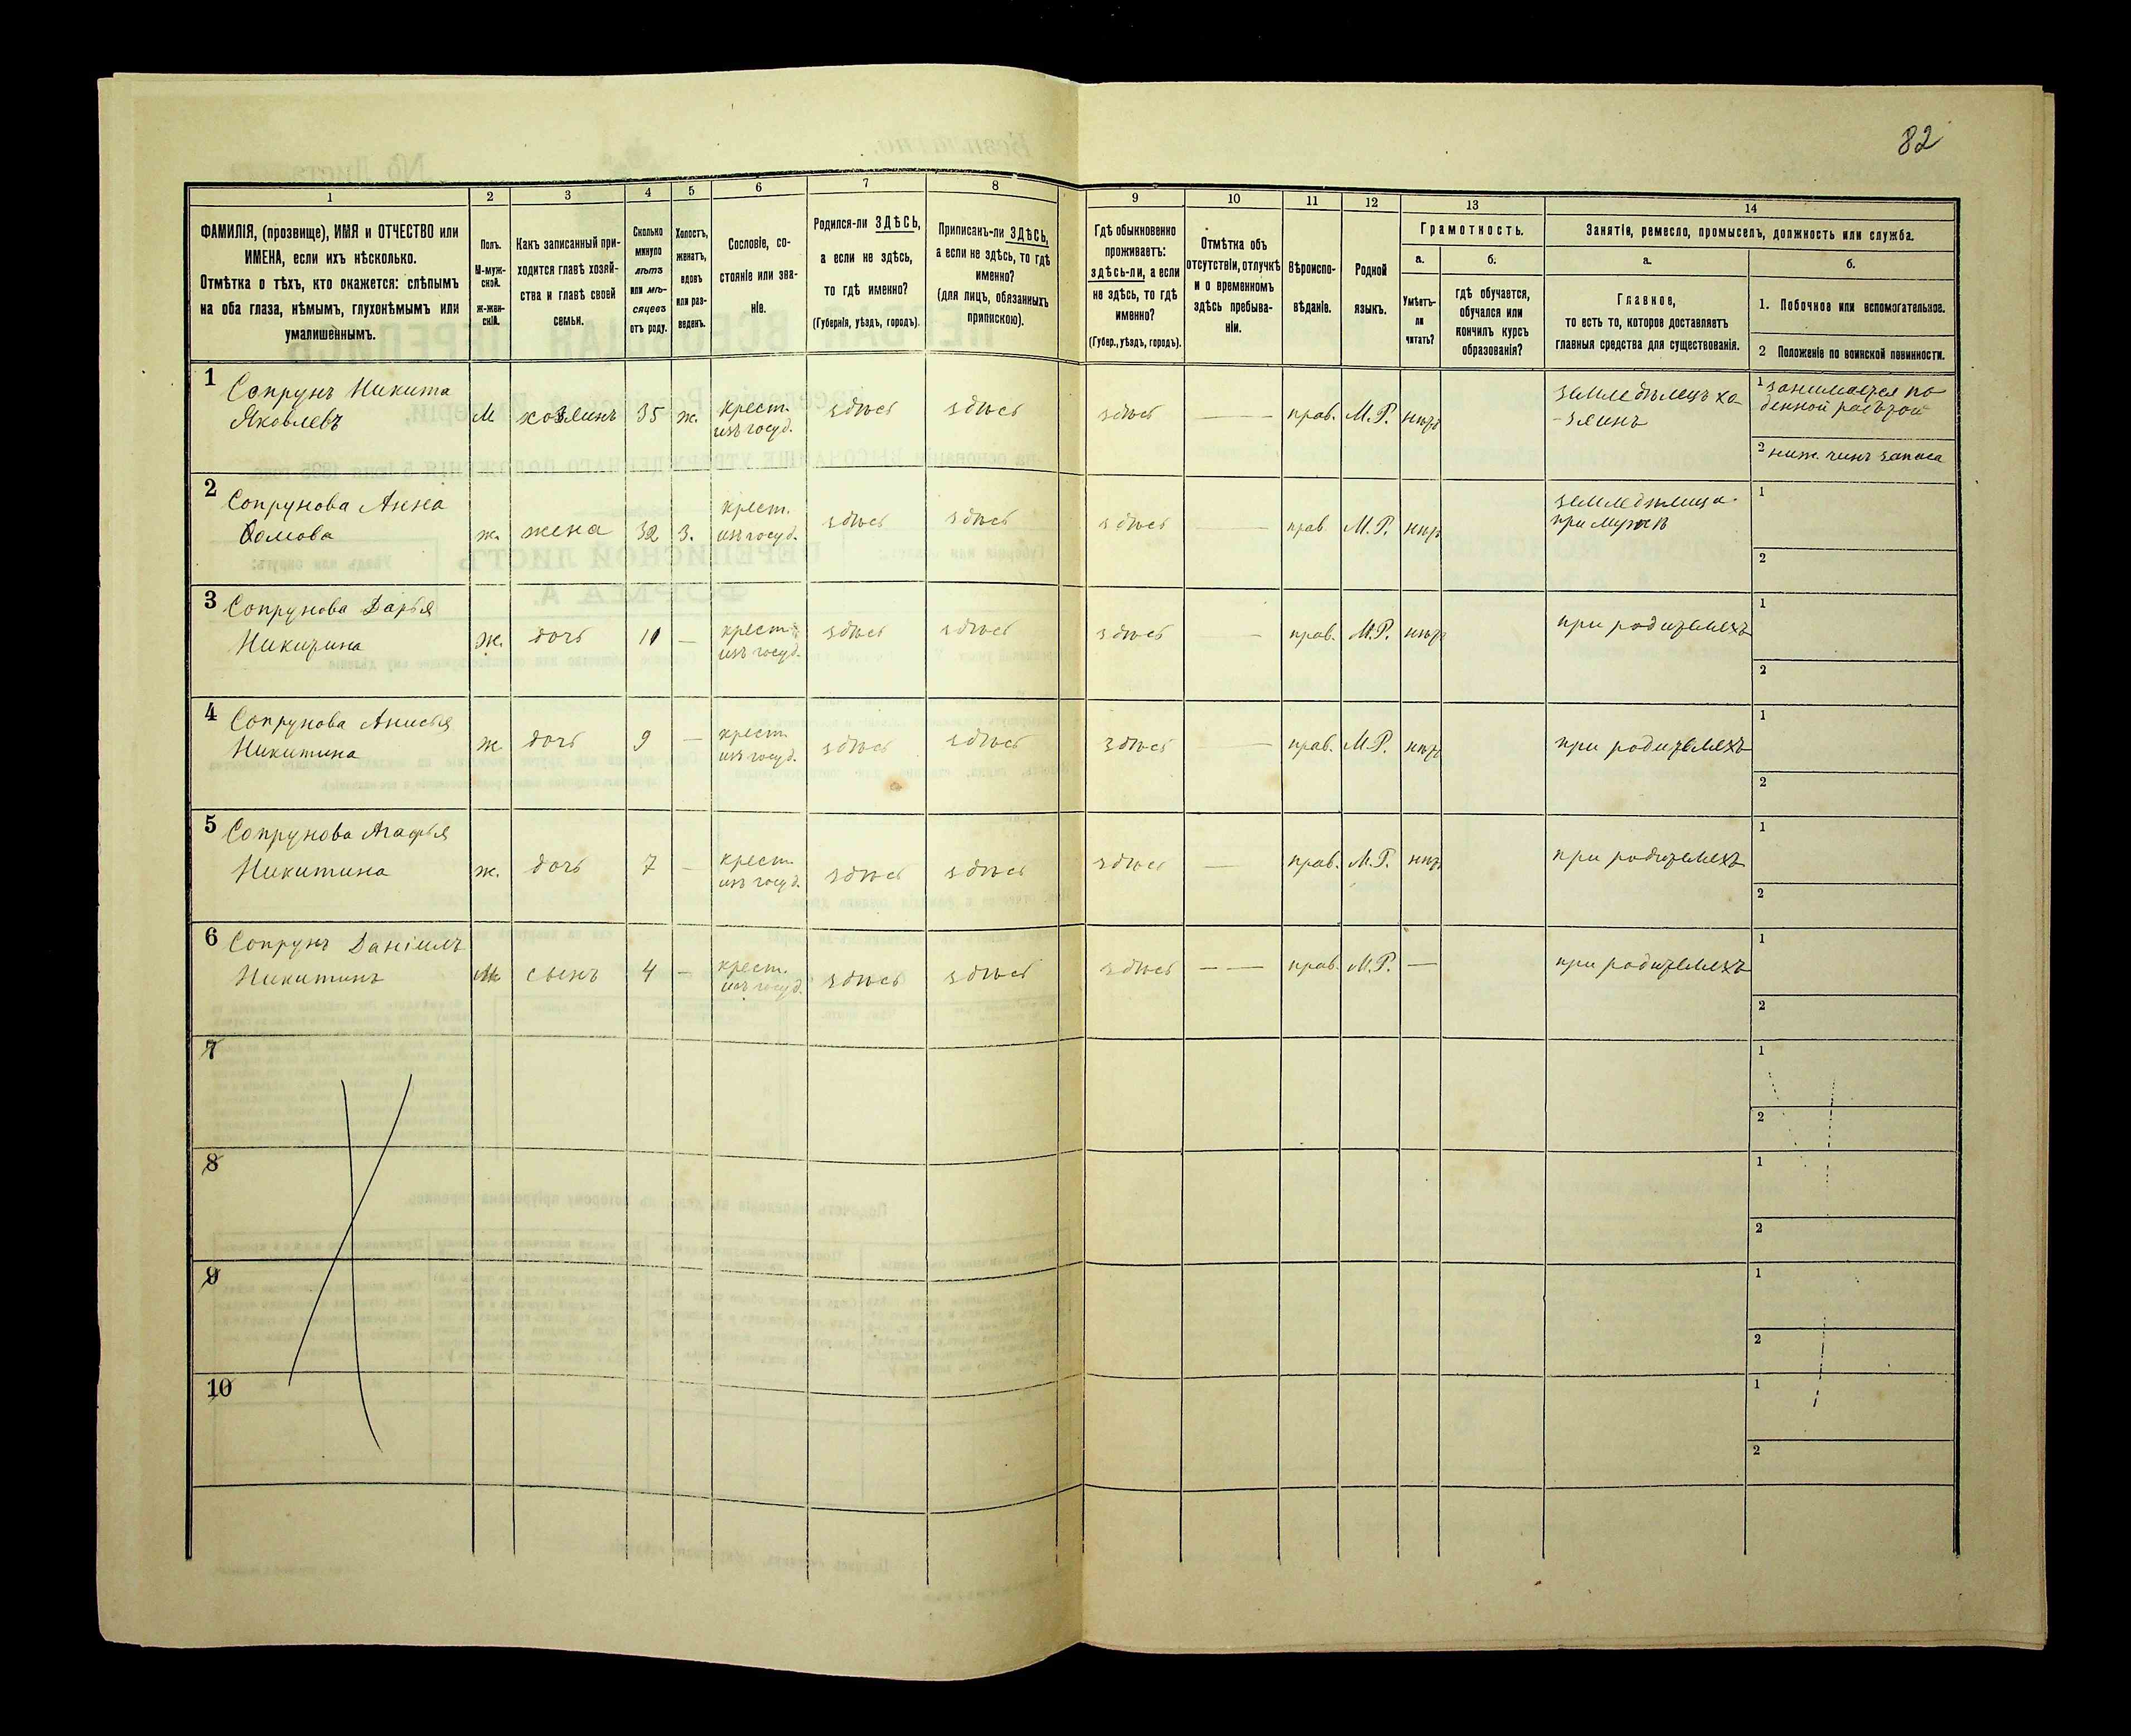 82
1
2
3
4
5
6
7
8
9
10
11
12
13
14
ФАМИЛІЯ, (прозвище), ИМЯ и ОТЧЕСТВО или
ИМЕНА, если ихъ нѣсколько.
Отмѣтка о тѣхъ, кто окажется: слѣпымъ
на оба глаза, нѣмымъ, глухонѣмымъ или
умалишеннымъ.
Полъ.
М-муж-
ской.
ж-жен-
скій.
Какъ записанный при-
ходится главѣ хозяй-
ства и главѣ своей
семьи.
Сколько
минуло
лѣтъ
или мѣ-
сяцевъ
отъ роду.
Холостъ,
женатъ,
вдовъ
или раз-
веденъ.
Сословіе, со-
стояніе или зва-
ніе.
Родился-ли ЗДѢСЬ,
а если не здѣсь,
то гдѣ именно?
(Губернія, уѣздъ, городъ).
Приписанъ-ли ЗДѢСЬ,
а если не здѣсь, то гдѣ
именно?
(для лицъ, обязанныхъ
припискою).
Гдѣ обыкновенно
проживаетъ:
здѣсь-ли, а если
не здѣсь, то гдѣ
именно?
(Губер., уѣздъ, городъ).
Отмѣтка объ
отсутствіи, отлучкѣ
и о временномъ
здѣсь пребыва-
ніи.
Вѣроиспо-
вѣданіе.
Родной
языкъ.
Грамотность.
а.
Умѣетъ-
ли
читать?
б.
гдѣ обучается,
обучался или
кончилъ курсъ
образованія?
Занятіе, ремесло, промыселъ, должность или служба.
а.
Главное,
то есть то, которое доставляетъ
главныя средства для существованія.
б.
1. Побочное или вспомогательное.
2 Положеніе по воинской повинности.
1 Сопрунъ Никита
Яковлевъ
М хозяинъ 35 ж. крест.
изъ госуд.
здѣсь здѣсь здѣсь прав. М.Р. нѣтъ
земледѣлецъ хо
-зяинъ
1 занимается по
денной работой
2 ниж. чинъ запаса
2 Сопрунова Анна
Ѳомова
ж. жена 32 з. крест.
изъ госуд.
здѣсь здѣсь здѣсь прав. М.Р. нѣтъ
земледѣлица
при мужѣ
1
2
3 Сопрунова Дарья
Никитина
ж. дочь 11 — крест.
изъ госуд.
здѣсь здѣсь здѣсь — прав. М.Р. нѣтъ
при родителяхъ
1
2
4 Сопрунова Анисья
Никитина
ж. дочь 9 — крест.
изъ госуд.
здѣсь здѣсь здѣсь — прав. М.Р. нѣтъ
при родителяхъ
1
2
5 Сопрунова Агафья
Никитина
ж. дочь 7 — крест.
изъ госуд.
здѣсь здѣсь здѣсь — прав. М.Р. нѣтъ
при родителяхъ
1
2
6 Сопрунъ Даніилъ
Никитинъ
М сынъ 4 — крест.
изъ госуд.
здѣсь здѣсь здѣсь — — прав. М.Р. —
при родителяхъ
1
2
7
1
2
8
1
2
9
1
2
10
1
2